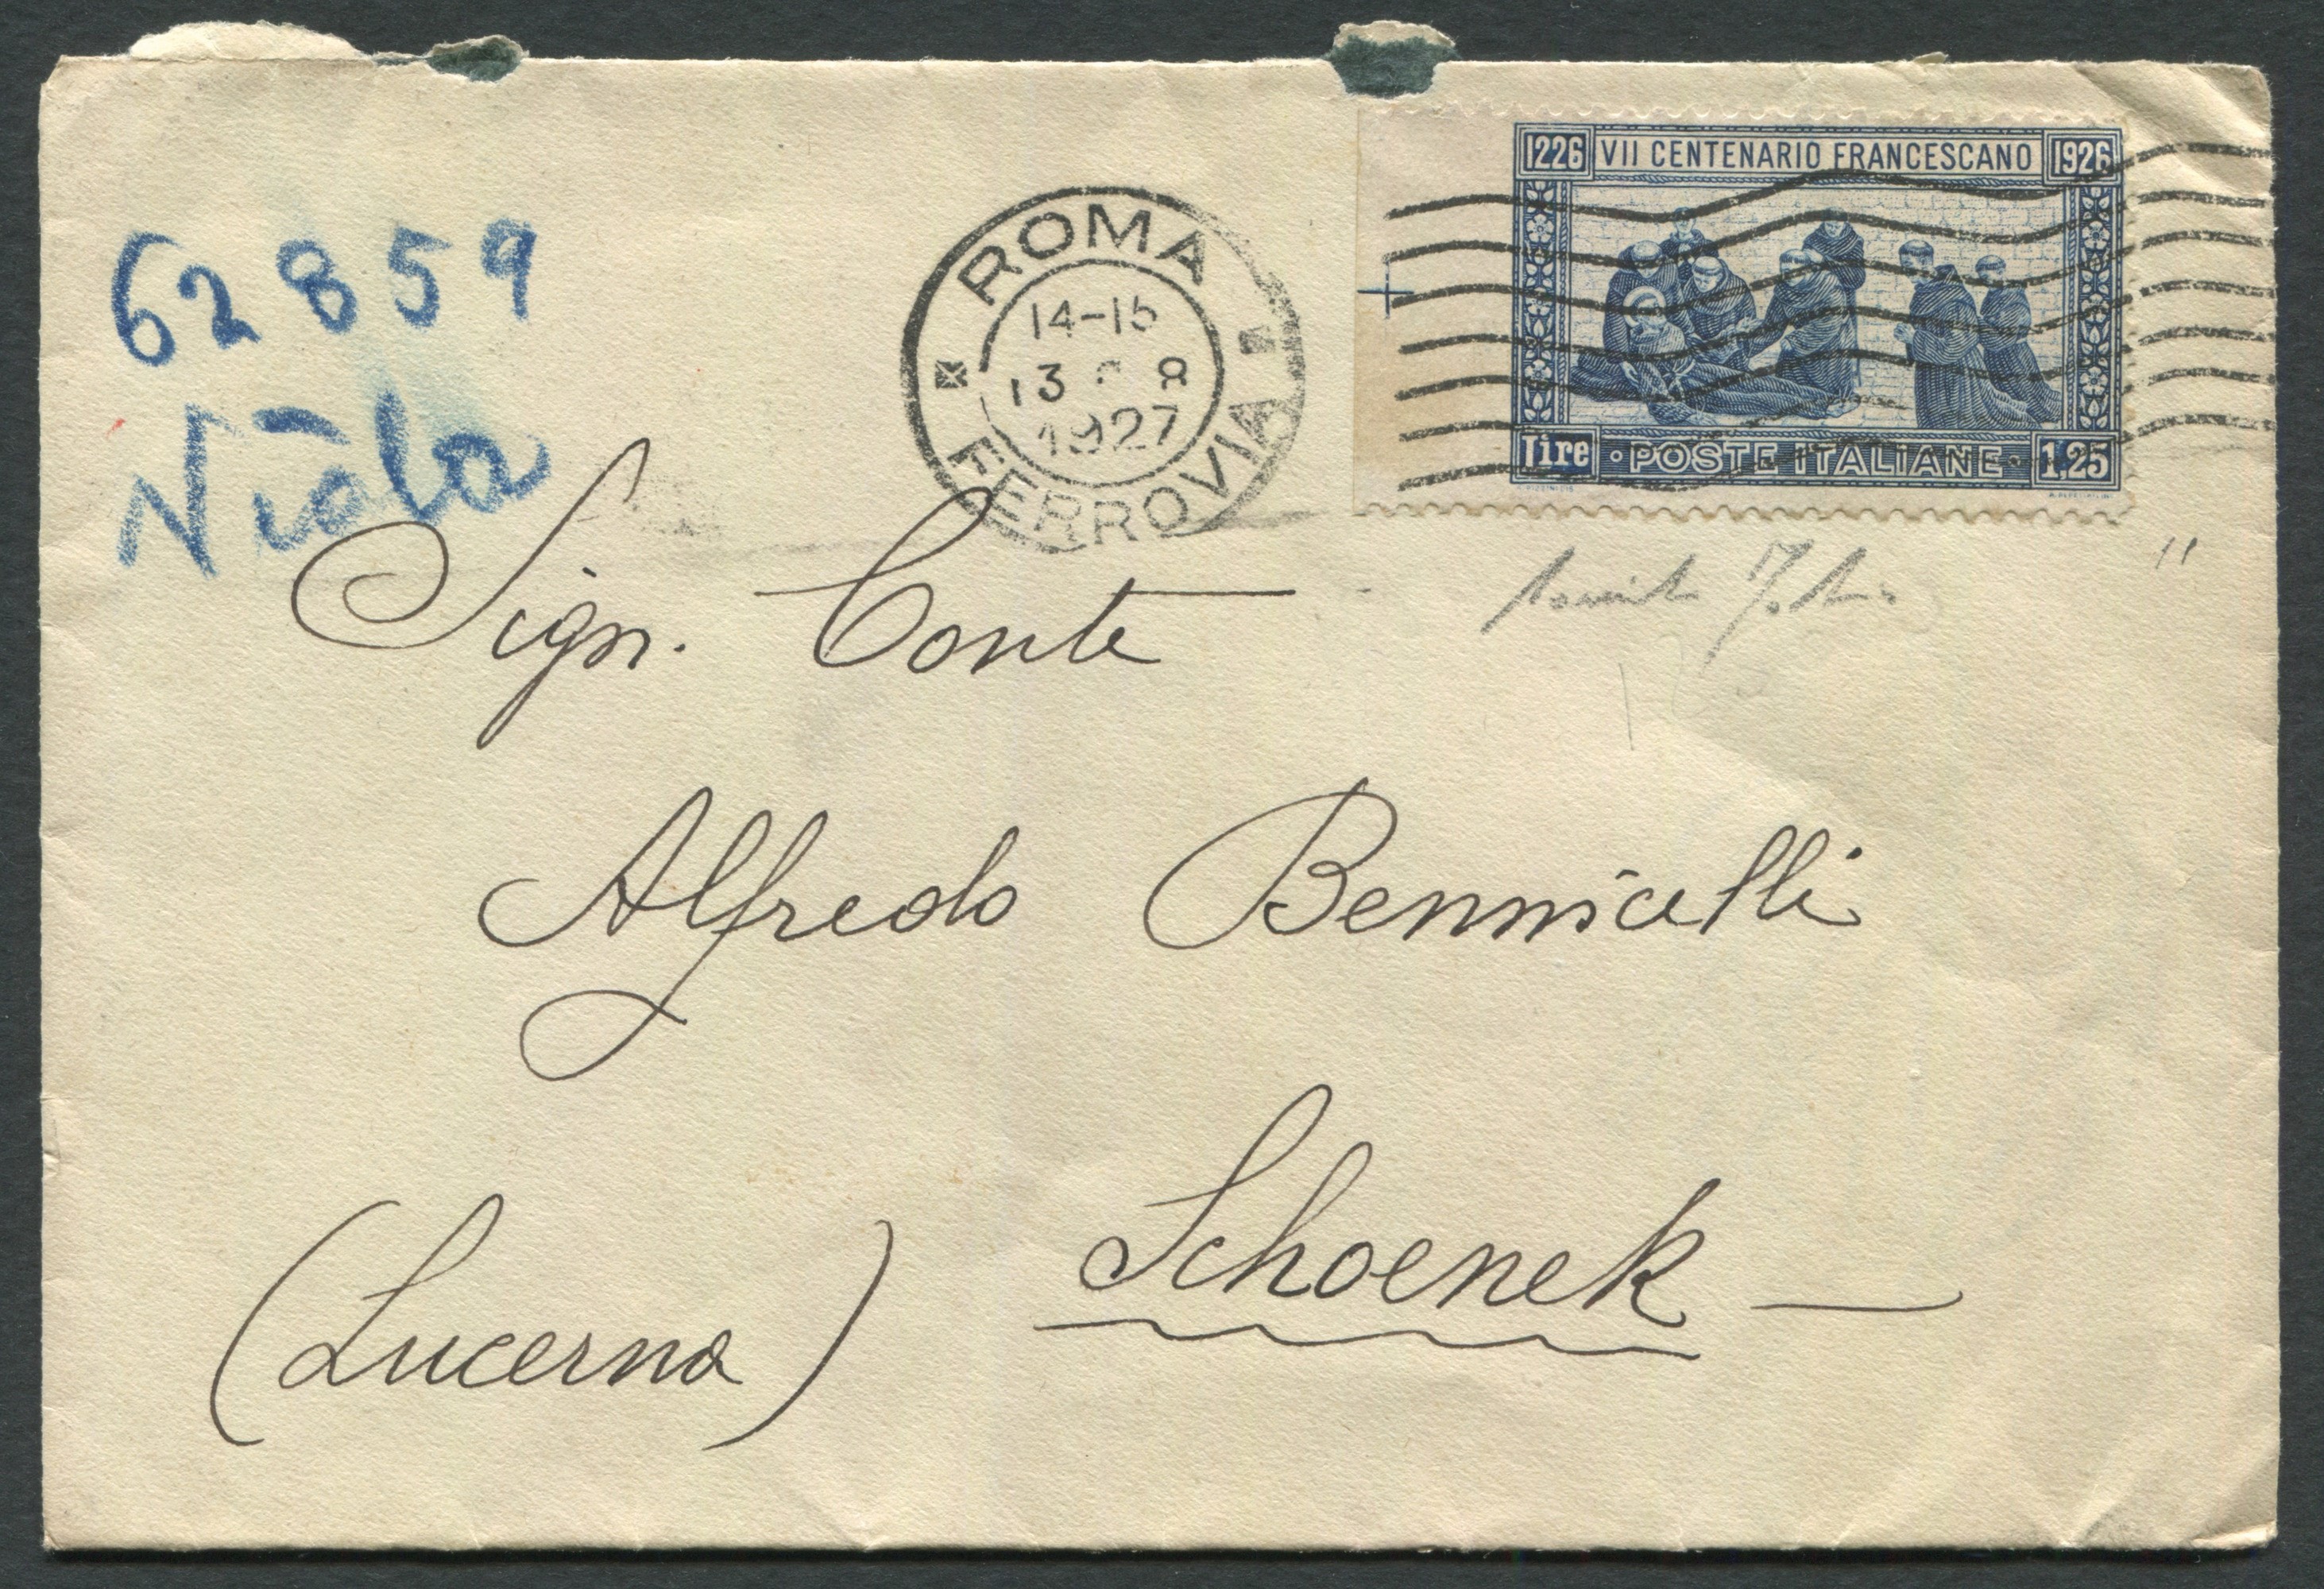 1226 VII CENTENARIO FRANCESCANO 1926
lire · POSTE ITALIANE · 1,25
ROMA
14-15
13 8
1927
FERROVIA
62859
Sign. Conte
Alfredo Bennicelli
Schoenek —
(Lucerna)